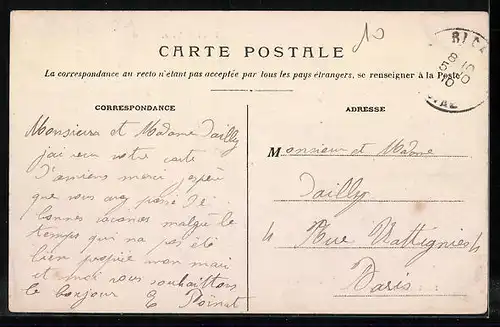 10
CARTE POSTALE
La correspondance au recto n'étant pas acceptée par tous les pays étrangers, se renseigner à la Poste
CORRESPONDANCE
ADRESSE
Monsieur et Madame Dailly
j'ai reçu votre carte
d'amiens merci j'espère
que vous avez passé de
bonnes vacances malgré le
temps qui na pas été
bien propice mon mari
et moi vous souhaitons
le bonjour E Poinat
Monsieur et Madame
Dailly
Rue Wattignies
Paris